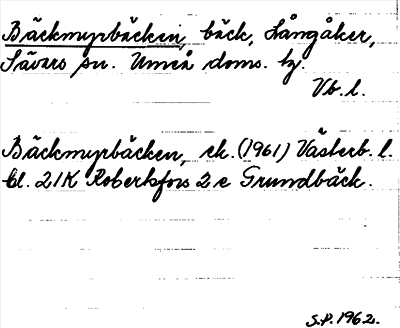 Bäckmyrbäcken, bäck, Långåker,
Sävars sn. Umeå doms. tg.
Vb. l.
Bäckmyrbäcken, ek. (1961) Västerb. l.
bl. 21K Robertsfors 2 e Grundbäck.
S.P. 1962.